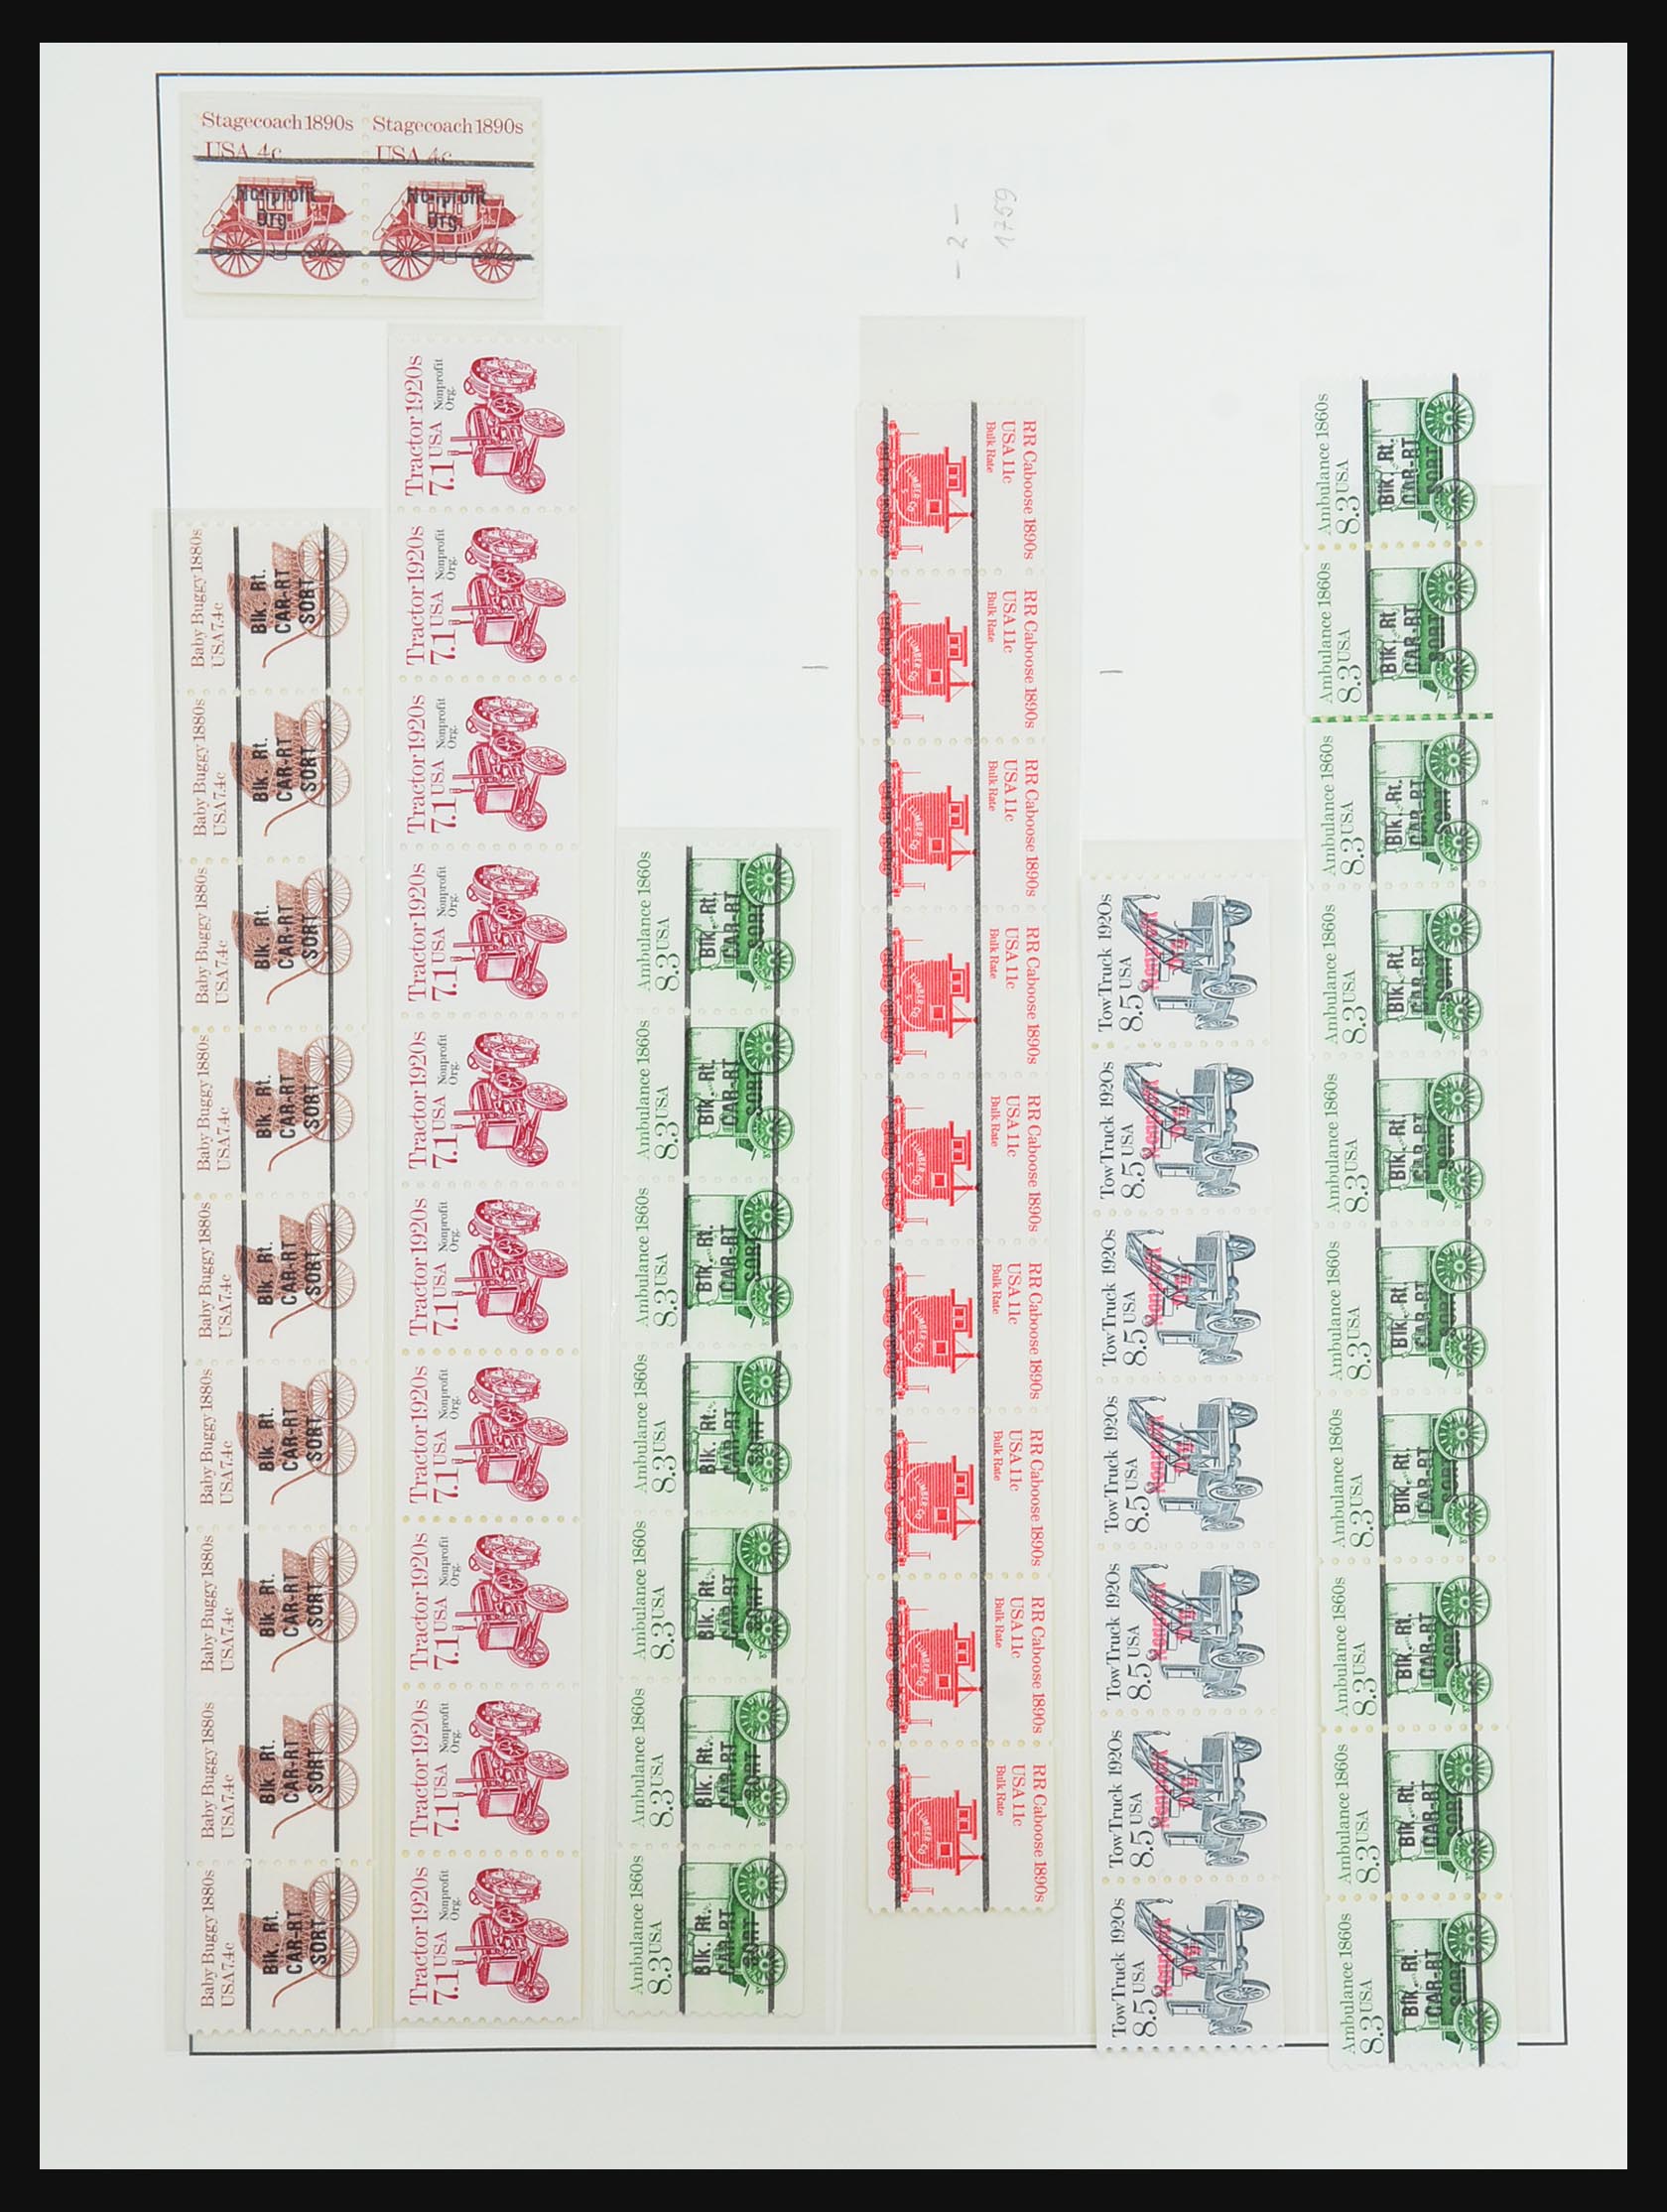 Stagecoach 1890s Stagecoach 1890s
USA 4c USA 4c
Nonprofit Nonprofit
Org. Org.
- 2 -
1759
Baby Buggy 1880s
USA 7.4c
Blk. Rt.
CAR-RT
SORT
Baby Buggy 1880s
USA 7.4c
Blk. Rt.
CAR-RT
SORT
Baby Buggy 1880s
USA 7.4c
Blk. Rt.
CAR-RT
SORT
Baby Buggy 1880s
USA 7.4c
Blk. Rt.
CAR-RT
SORT
Baby Buggy 1880s
USA 7.4c
Blk. Rt.
CAR-RT
SORT
Baby Buggy 1880s
USA 7.4c
Blk. Rt.
CAR-RT
SORT
Baby Buggy 1880s
USA 7.4c
Blk. Rt.
CAR-RT
SORT
Baby Buggy 1880s
USA 7.4c
Blk. Rt.
CAR-RT
SORT
Baby Buggy 1880s
USA 7.4c
Blk. Rt.
CAR-RT
SORT
Tractor 1920s
7.1 USA Nonprofit
Org.
Tractor 1920s
7.1 USA Nonprofit
Org.
Tractor 1920s
7.1 USA Nonprofit
Org.
Tractor 1920s
7.1 USA Nonprofit
Org.
Tractor 1920s
7.1 USA Nonprofit
Org.
Tractor 1920s
7.1 USA Nonprofit
Org.
Tractor 1920s
7.1 USA Nonprofit
Org.
Tractor 1920s
7.1 USA Nonprofit
Org.
Tractor 1920s
7.1 USA Nonprofit
Org.
Tractor 1920s
7.1 USA Nonprofit
Org.
Ambulance 1860s
8.3 USA
Blk. Rt.
CAR-RT
SORT
Ambulance 1860s
8.3 USA
Blk. Rt.
CAR-RT
SORT
Ambulance 1860s
8.3 USA
Blk. Rt.
CAR-RT
SORT
Ambulance 1860s
8.3 USA
Blk. Rt.
CAR-RT
SORT
Ambulance 1860s
8.3 USA
Blk. Rt.
CAR-RT
SORT
Ambulance 1860s
8.3 USA
Blk. Rt.
CAR-RT
SORT
Ambulance 1860s
8.3 USA
Blk. Rt.
CAR-RT
SORT
RR Caboose 1890s
USA 11c
Bulk Rate
RR Caboose 1890s
USA 11c
Bulk Rate
RR Caboose 1890s
USA 11c
Bulk Rate
RR Caboose 1890s
USA 11c
Bulk Rate
RR Caboose 1890s
USA 11c
Bulk Rate
RR Caboose 1890s
USA 11c
Bulk Rate
RR Caboose 1890s
USA 11c
Bulk Rate
RR Caboose 1890s
USA 11c
Bulk Rate
RR Caboose 1890s
USA 11c
Bulk Rate
Tow Truck 1920s
8.5 USA
Tow Truck 1920s
8.5 USA
Tow Truck 1920s
8.5 USA
Tow Truck 1920s
8.5 USA
Tow Truck 1920s
8.5 USA
Tow Truck 1920s
8.5 USA
Tow Truck 1920s
8.5 USA
Ambulance 1860s
8.3 USA
Blk. Rt.
CAR-RT
SORT
Ambulance 1860s
8.3 USA
Blk. Rt.
CAR-RT
SORT
Ambulance 1860s
8.3 USA
Blk. Rt.
CAR-RT
SORT
2
Ambulance 1860s
8.3 USA
Blk. Rt.
CAR-RT
SORT
Ambulance 1860s
8.3 USA
Blk. Rt.
CAR-RT
SORT
Ambulance 1860s
8.3 USA
Blk. Rt.
CAR-RT
SORT
Ambulance 1860s
8.3 USA
Blk. Rt.
CAR-RT
SORT
Ambulance 1860s
8.3 USA
Blk. Rt.
CAR-RT
SORT
Ambulance 1860s
8.3 USA
Blk. Rt.
CAR-RT
SORT
Ambulance 1860s
8.3 USA
Blk. Rt.
CAR-RT
SORT